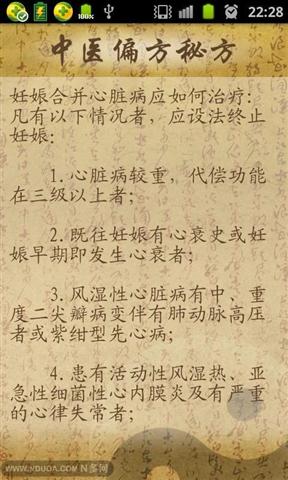 100%
22:28
中医偏方秘方
妊娠合并心脏病应如何治疗:
凡有以下情况者，应设法终止
妊娠:
1. 心脏病较重，代偿功能
在三级以上者;
2. 既往妊娠有心衰史或妊
娠早期即发生心衰者;
3. 风湿性心脏病有中、重
度二尖瓣病变伴有肺动脉高压
者或紫绀型先心病;
4. 患有活动性风湿热、亚
急性细菌性心内膜炎及有严重
的心律失常者;
WWW.NDUOA.COM N多网